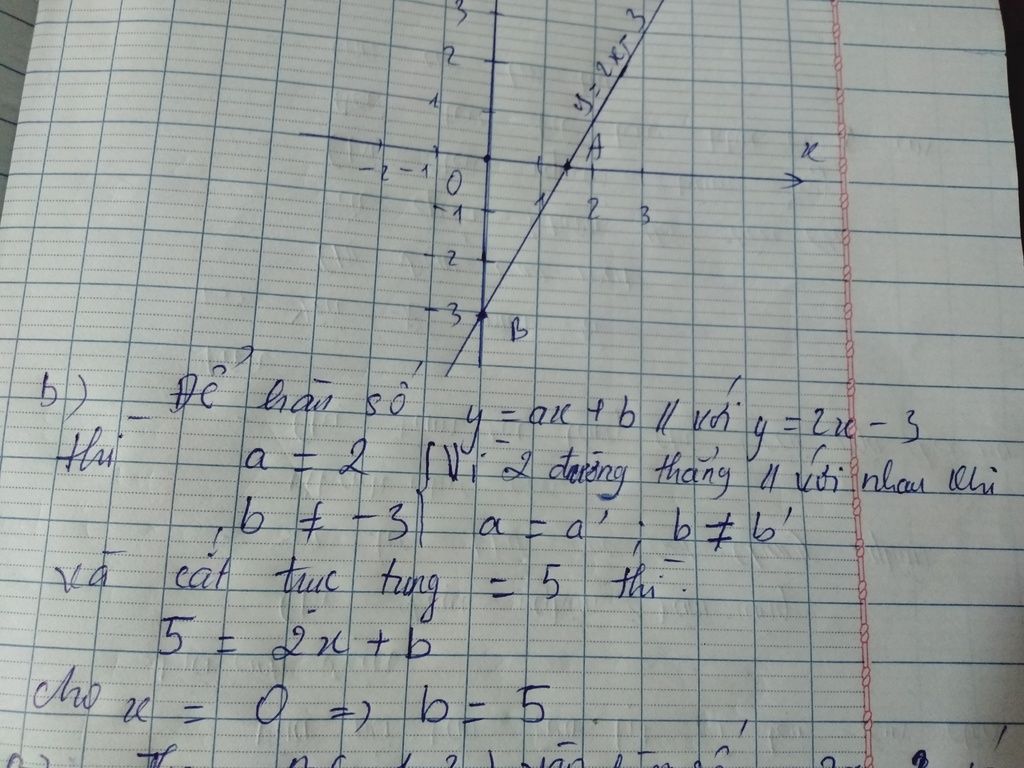 3
2
y = 2x - 3
1
A
x
-2 -1
0
1 2 3
-1
-2
-3
B
b) Để hàm số y = ax + b // với y = 2x - 3
thì a = 2 (Vì 2 đường thẳng // với nhau khi
b ≠ -3 a = a' ; b ≠ b'
và cắt trục tung = 5 thì
5 = 2x + b
cho x = 0 => b = 5